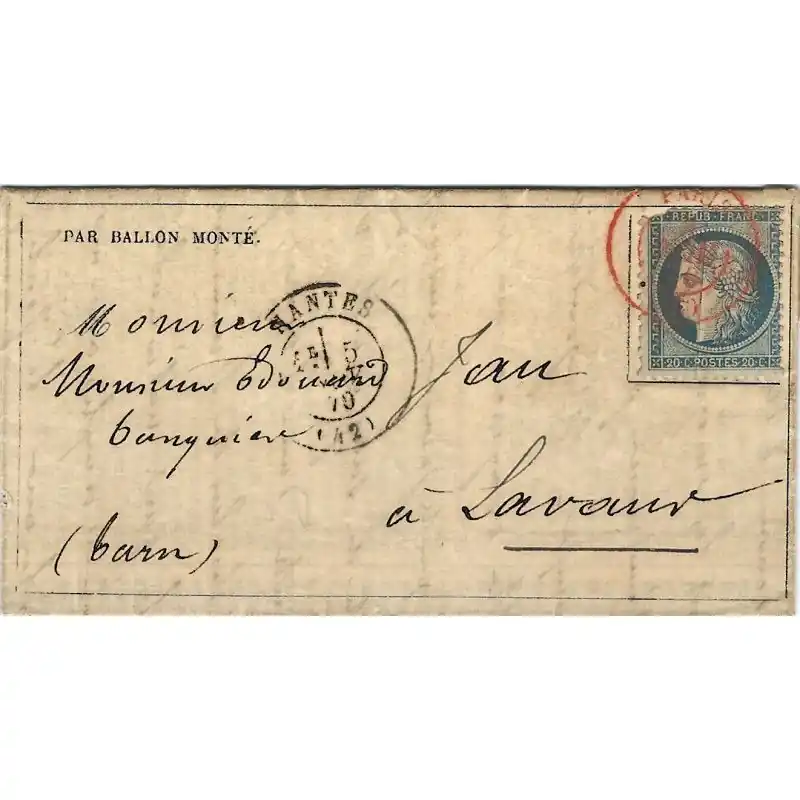 PAR BALLON MONTÉ.
PARIS
REPUB. FRANC.
20 C. POSTES 20 C.
NANTES
5
70
(42)
Monsieur
Monsieur Edouard Jau
banquier
à Lavaur
(Tarn)